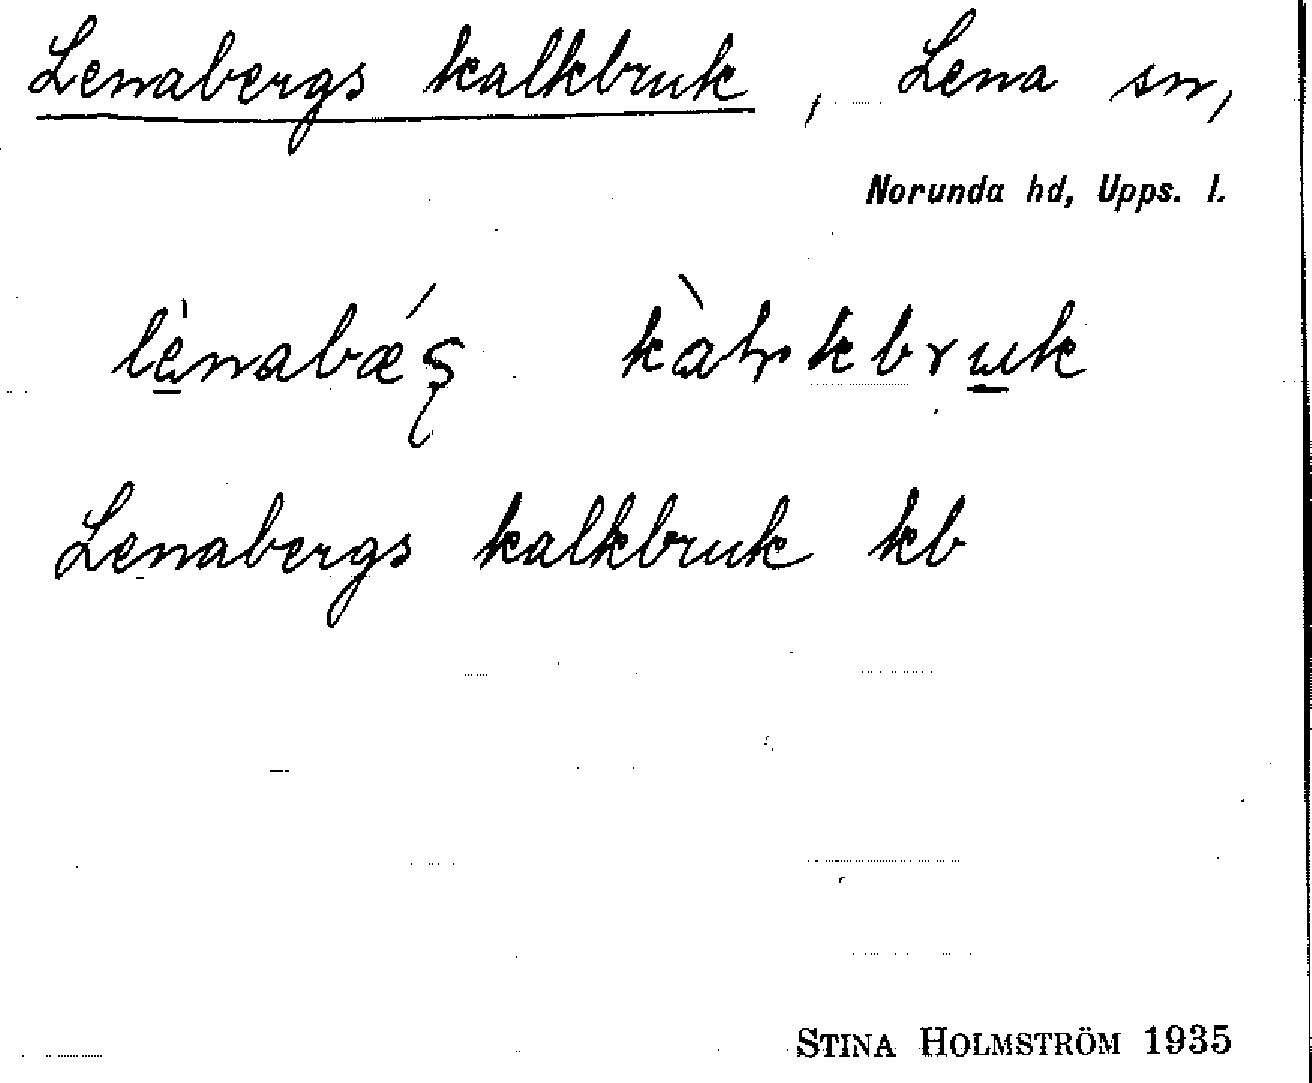 Lenabergs kalkbruk, Lena sn,
Norunda hd, Upps. l.
Lenabergs kalkbruk kb
STINA HOLMSTRÖM 1935